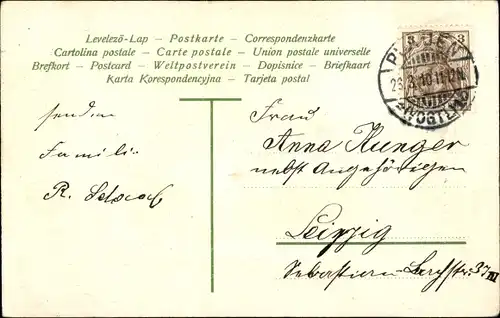 Levelező-Lap — Postkarte — Correspondenzkarte
Cartolina postale — Carte postale — Union postale universelle
Brefkort — Postcard — Weltpostverein — Dopisnice — Briefkaart
Karta Korespondencyjna — Tarjeta postal
3 3
PLAUEN
(VOGTL.)
senden
Familie
R.
Frau
Anna Kunger
nebst Angehörigen
Leipzig
Sebastian-Bachstr. 37 III